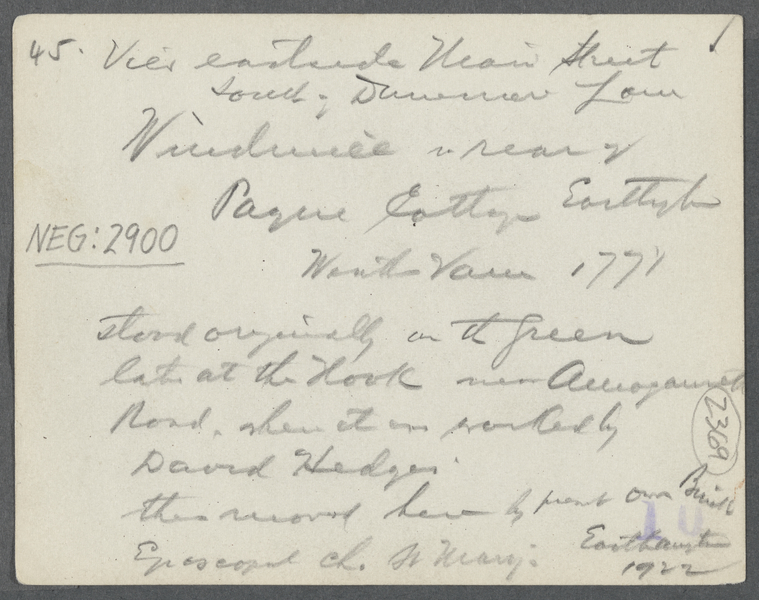 45. View eastside Main Street
South of Dunemere Lane
Windmill in rear of
Payne Cottage Easthampton
Weath Vane 1771
stood originally on th Green
late at the Hook near Amagansett
NEG: 2900
Road, when it was worked by
David Hedges
2369
then moved here by present own Built
Episcopal Ch. St Mary's Easthampton
1922